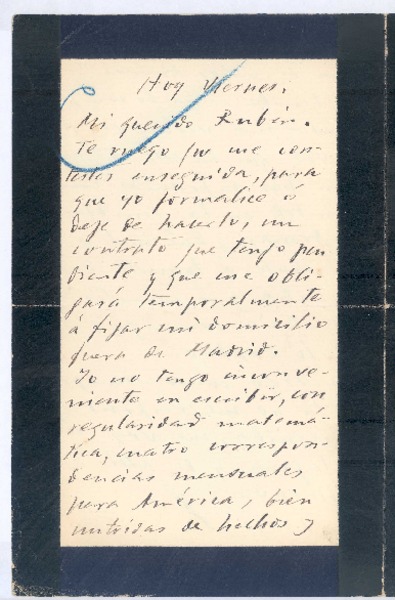 Hoy Viernes.
Mi querido Rubén.
Te ruego que me con-
testes enseguida, para
que yo formalice ó
deje de hacerlo, un
contrato que tengo pen
diente y que me obli-
gará temporalmente
á fijar mi domicilio
fuera de Madrid.
Yo no tengo inconve-
niente en escribir, con
regularidad matemá-
tica, cuatro correspon-
dencias mensuales
para América, bien
nutridas de hechos y